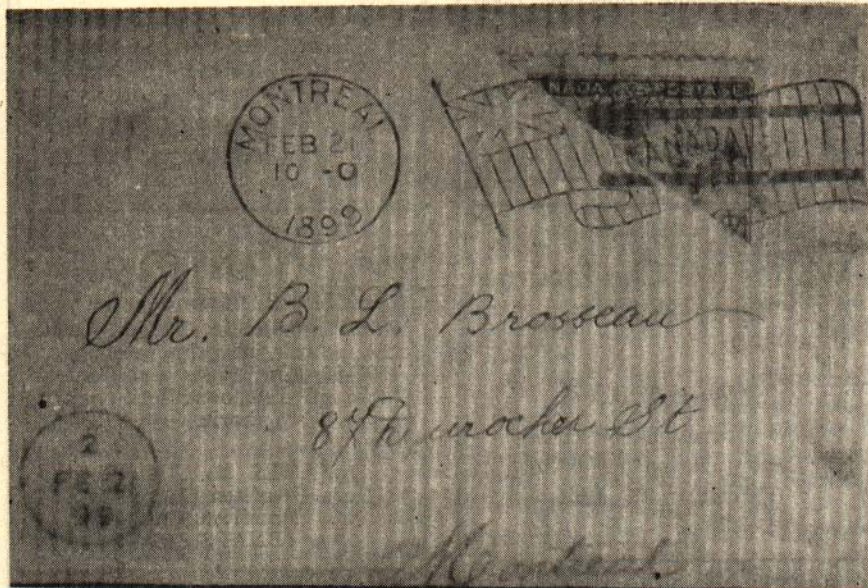 MONTREAL
FEB 21
10 - 0
1899
CANADA
Mr. B. L. Brosseau
87 Durocher St
Montreal
2
FE 2
99